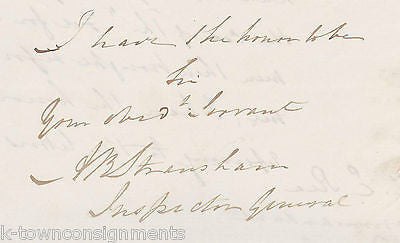 I have the honor to be
Sir
Your Obed.t Servant
A B Stransham
Inspector General
k-townconsignments